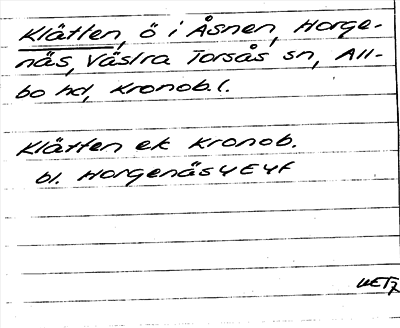 Klätten, ö i Åsnen, Horge-
näs, Västra Torsås sn, All-
bo hd, Kronob. l.
Klätten ek Kronob.
bl. Horgenäs 4E4f